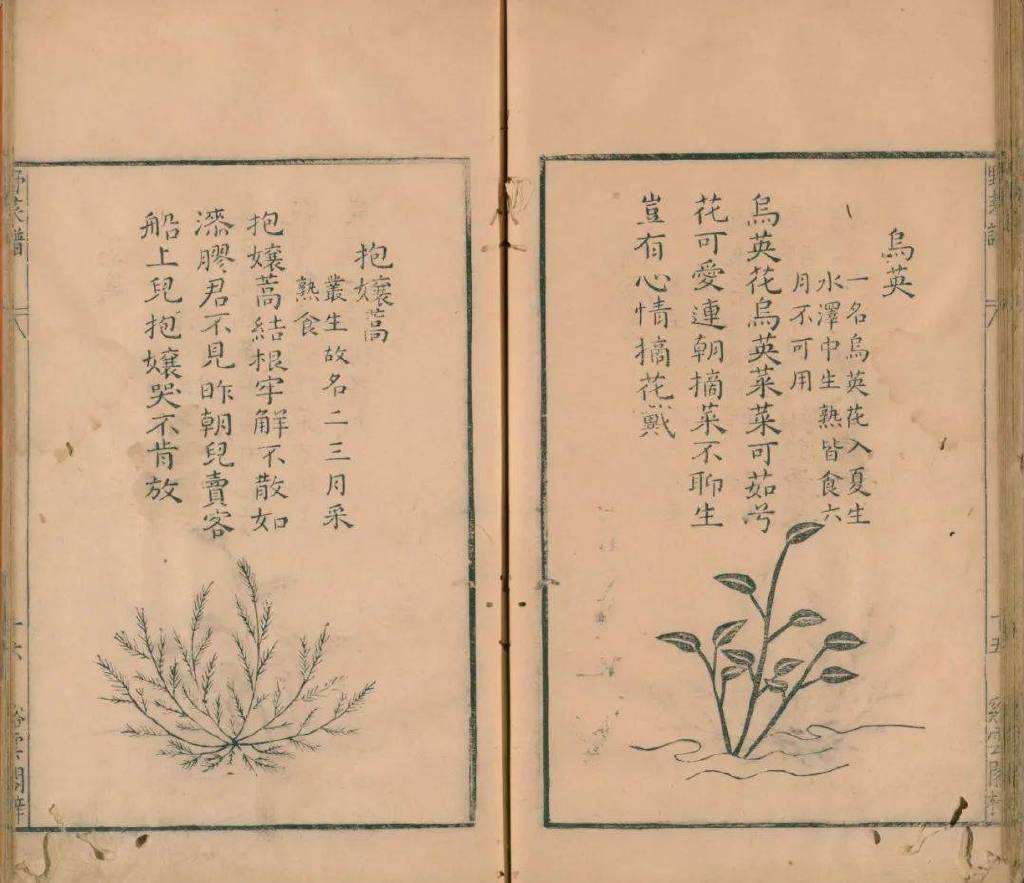 野菜譜
十五
烏英
一名烏英花入夏生
水澤中生熟皆食六
月不可用
烏英花烏英菜菜可茹兮
花可愛連朝摘菜不聊生
豈有心情摘花戴
抱孃蒿
叢生故名二三月采
熟食
抱孃蒿結根牢解不散如
漆膠君不見昨朝兒賣客
船上兒抱孃哭不肯放
野菜譜
十六